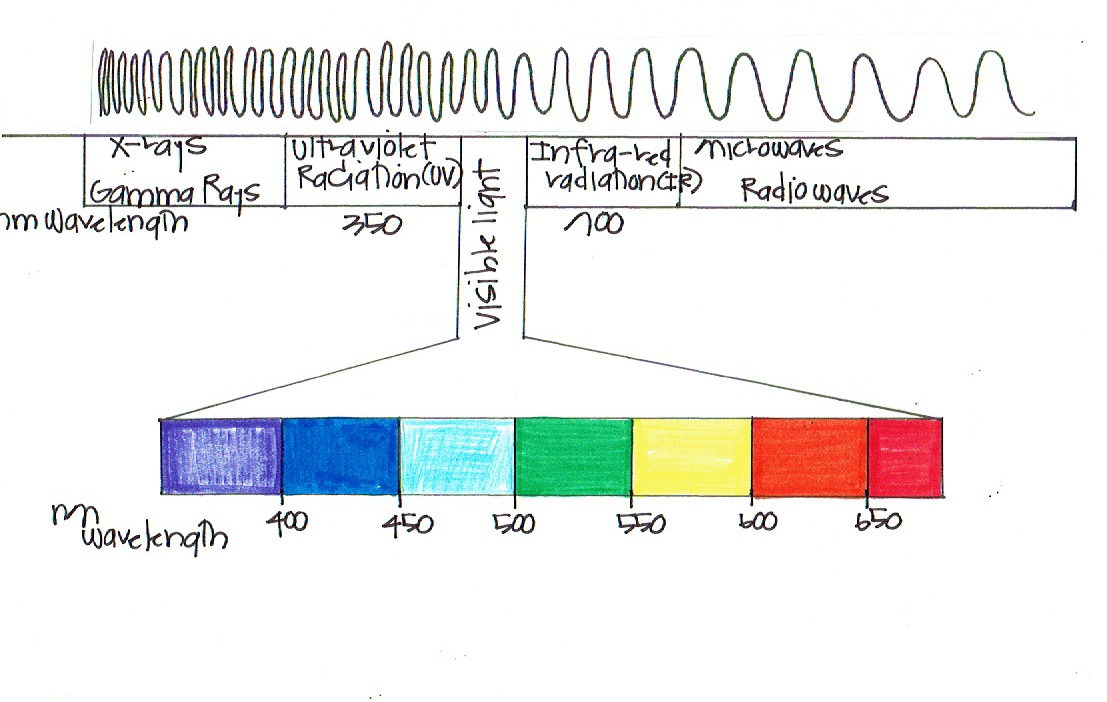 X-rays
Gamma Rays
Ultraviolet
Radiation(UV)
Visible light
Infra-red
radiation(IR)
Microwaves
Radio waves
nm wavelength
350
700
400
450
500
550
600
650
nm
wavelength